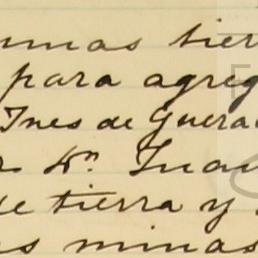 tier
para agreg
Ines de Guera
Dn. Juan
de tierra y
minas